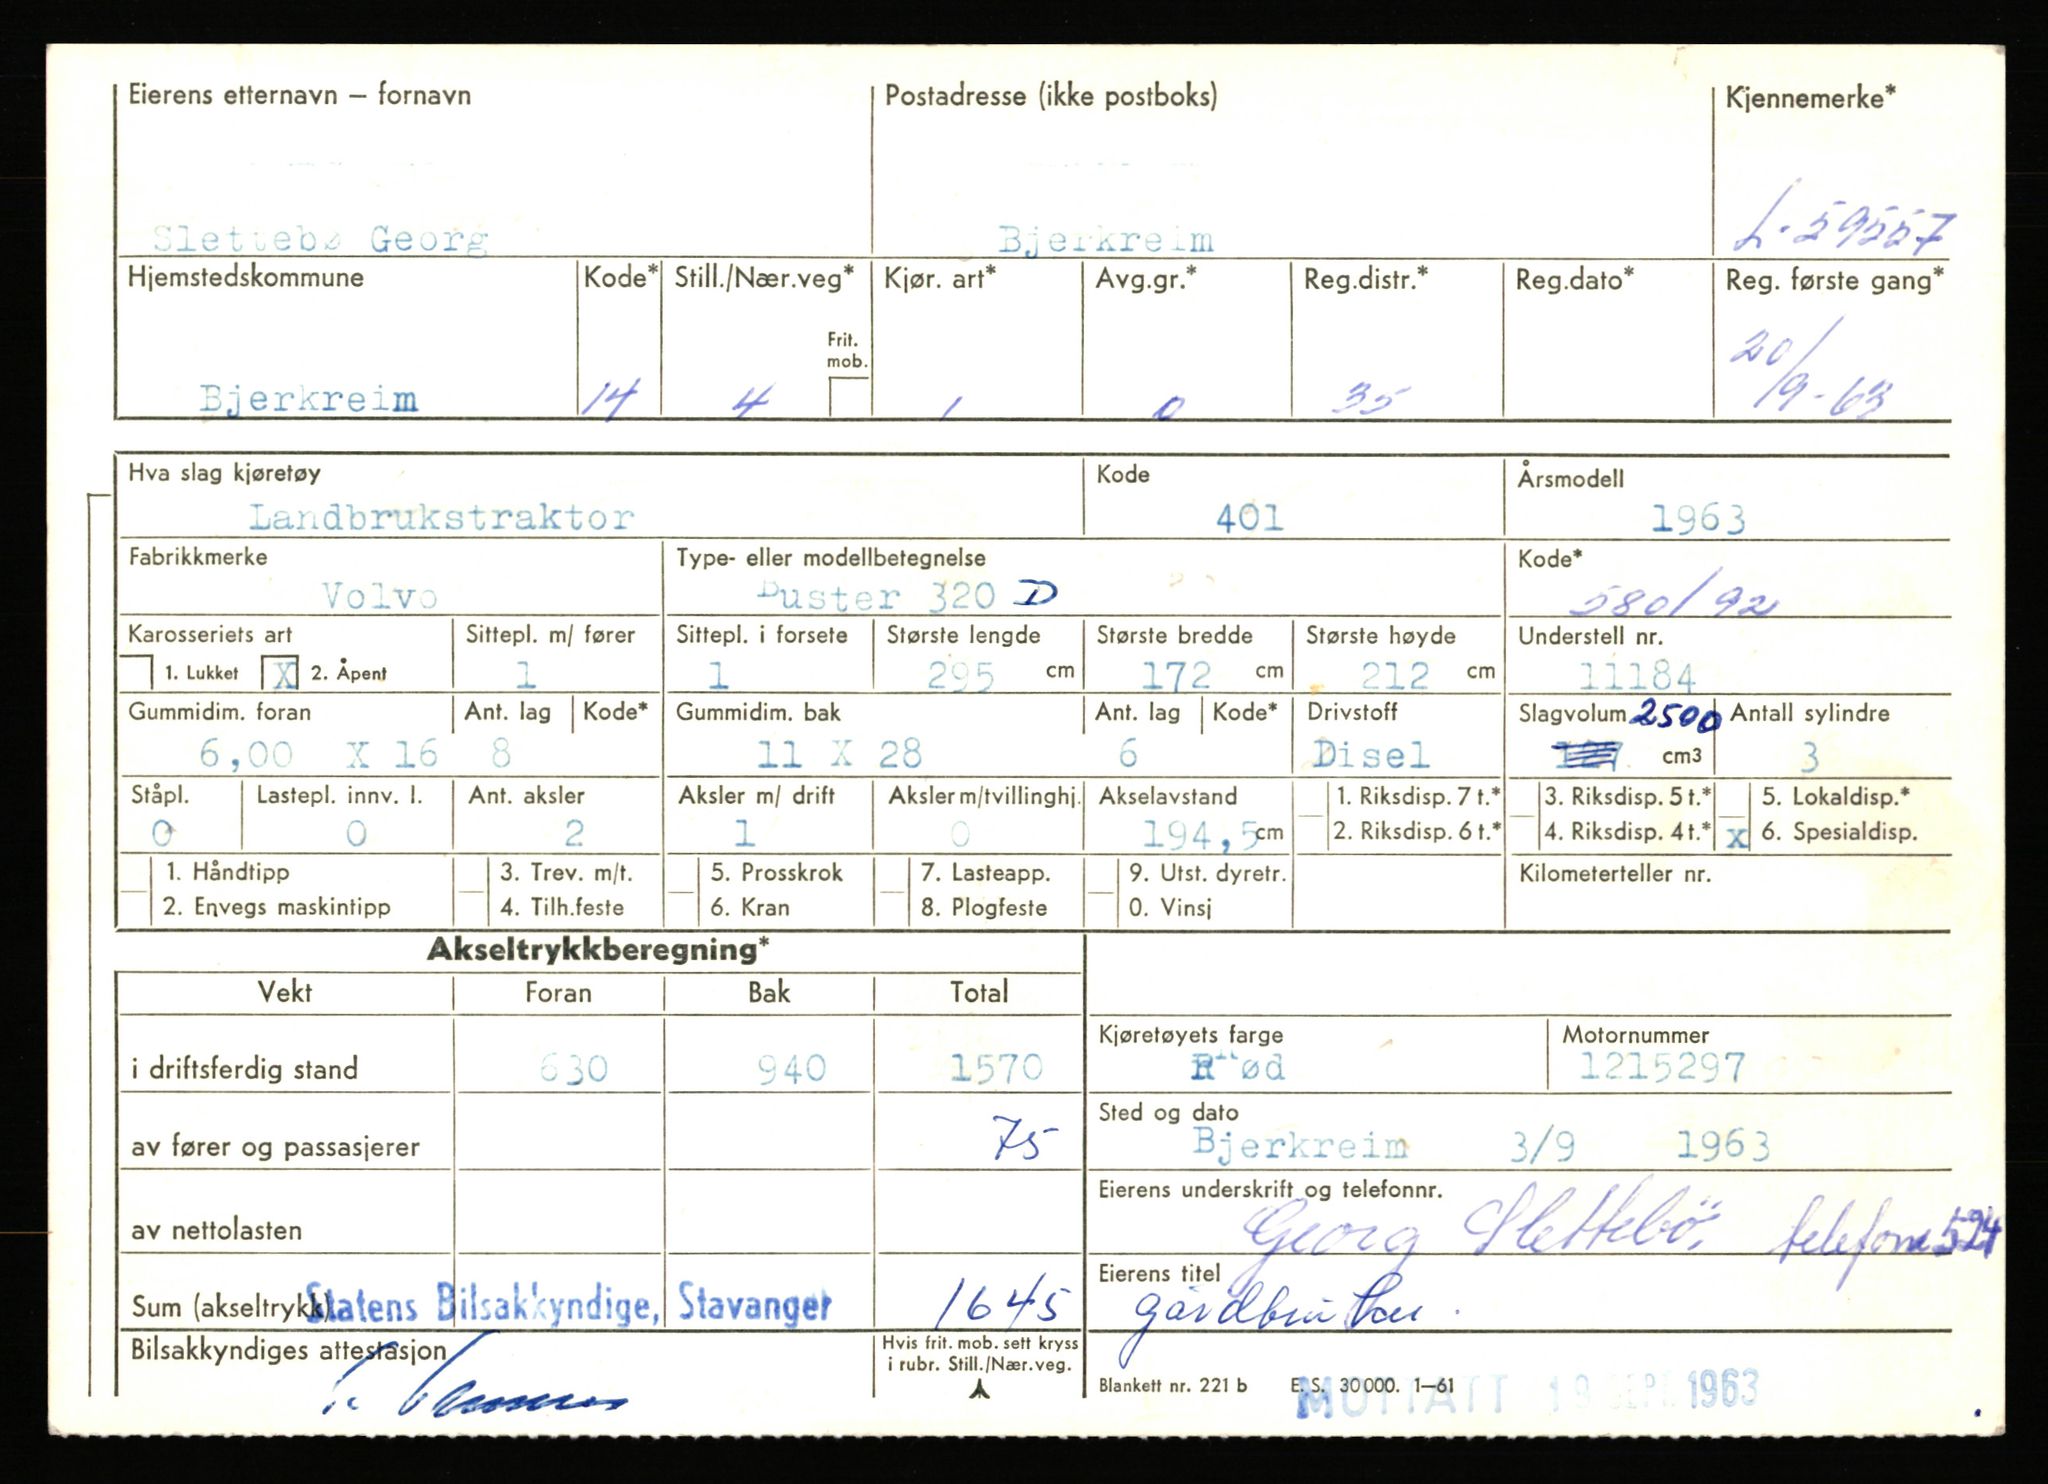 Eierens etternavn – fornavn Postadresse (ikke postboks) Kjennemerke*
Slettebø Georg Bjerkreim L-59557
Hjemstedskommune Kode* Still./Nær.veg* Kjør. art* Avg.gr.* Reg.distr.* Reg.dato* Reg. første gang*
Frit. mob.
Bjerkreim 14 4 1 0 35 20/9-63
Hva slag kjøretøy Kode Årsmodell
Landbrukstraktor 401 1963
Fabrikkmerke Type- eller modellbetegnelse Kode*
Volvo Buster 320 D 580/92
Karosseriets art Sittepl. m/ fører Sittepl. i forsete Største lengde Største bredde Største høyde Understell nr.
1. Lukket X 2. Åpent 1 1 295 cm 172 cm 212 cm 11184
Gummidim. foran Ant. lag Kode* Gummidim. bak Ant. lag Kode* Drivstoff Slagvolum 2500 Antall sylindre
6,00 X 16 8 11 X 28 6 Disel cm3 3
Ståpl. Lastepl. innv. l. Ant. aksler Aksler m/ drift Aksler m/tvillinghj. Akselavstand 1. Riksdisp. 7 t.* 3. Riksdisp. 5 t.* 5. Lokaldisp.*
0 0 2 1 0 194,5 cm 2. Riksdisp. 6 t.* 4. Riksdisp. 4 t.* X 6. Spesialdisp.
1. Håndtipp 3. Trev. m/t. 5. Prosskrok 7. Lasteapp. 9. Utst. dyretr. Kilometerteller nr.
2. Envegs maskintipp 4. Tilh.feste 6. Kran 8. Plogfeste 0. Vinsj
Akseltrykkberegning*
Vekt Foran Bak Total
Kjøretøyets farge Motornummer
i driftsferdig stand 630 940 1570 Rød 1215297
Sted og dato
av fører og passasjerer 75 Bjerkreim 3/9 1963
Eierens underskrift og telefonnr.
av nettolasten Georg Slettebö, telefon 524
Eierens titel
Sum (akseltrykk) Statens Bilsakkyndige, Stavanger 1645 gårdbruker.
Bilsakkyndiges attestasjon Hvis frit. mob. sett kryss
i rubr. Still./Nær.veg.
Blankett nr. 221 b E. S. 30 000. 1–61
MOTTATT 19 SEPT 1963